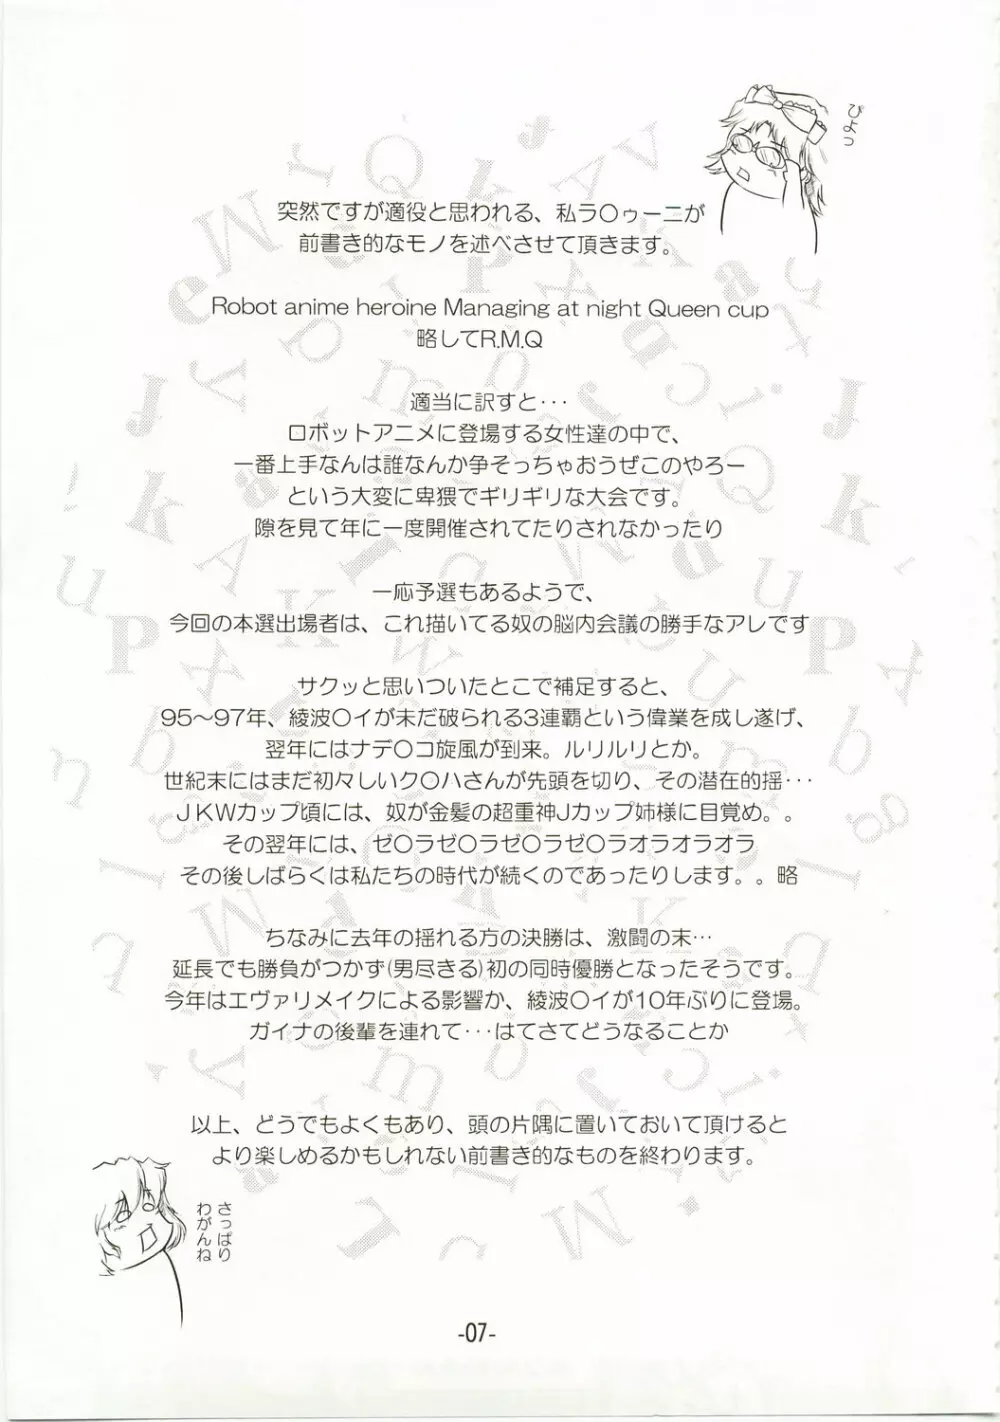 ぴよっ
突然ですが適役と思われる、私ラ〇ゥーニが
前書き的なモノを述べさせて頂きます。
Robot anime heroine Managing at night Queen cup
略してR.M.Q
適当に訳すと･･･
ロボットアニメに登場する女性達の中で、
一番上手なんは誰なんか争そっちゃおうぜこのやろー
という大変に卑猥でギリギリな大会です。
隙を見て年に一度開催されてたりされなかったり
一応予選もあるようで、
今回の本選出場者は、これ描いてる奴の脳内会議の勝手なアレです
サクッと思いついたとこで補足すると、
95～97年、綾波〇イが未だ破られる3連覇という偉業を成し遂げ、
翌年にはナデ〇コ旋風が到来。ルリルリとか。
世紀末にはまだ初々しいク〇ハさんが先頭を切り、その潜在的揺･･･
JKWカップ頃には、奴が金髪の超重神Jカップ姉様に目覚め。。
その翌年には、ゼ〇ラゼ〇ラゼ〇ラゼ〇ラオラオラオラ
その後しばらくは私たちの時代が続くのであったりします。。略
ちなみに去年の揺れる方の決勝は、激闘の末…
延長でも勝負がつかず(男尽きる)初の同時優勝となったそうです。
今年はエヴァリメイクによる影響か、綾波〇イが10年ぶりに登場。
ガイナの後輩を連れて･･･はてさてどうなることか
以上、どうでもよくもあり、頭の片隅に置いておいて頂けると
より楽しめるかもしれない前書き的なものを終わります。
さっぱり
わがんね
-07-